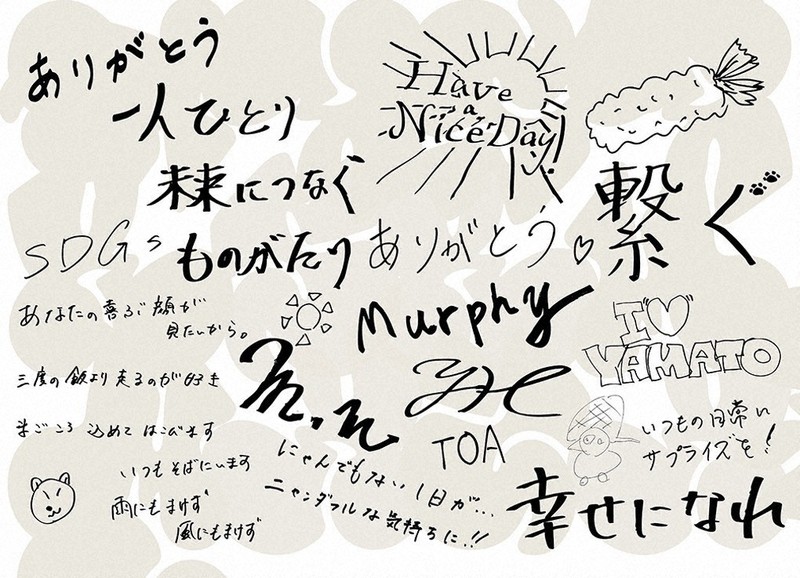 ありがとう
一人ひとり
未来につなぐ
ものがたり
Have
a
Nice Day!
繋ぐ
SDGs
ありがとう♡
あなたの喜ぶ顔が
見たいから。
Murphy
I♡
YAMATO
三度の飯より走るのが好き
まごころ込めてはこびます
TOA
いつもの日常に
サプライズを!
いつもそばにいます
雨にもまけず
風にもまけず
にゃんでもない1日が...
ニャンダフルな気持ちに!!
幸せになれ